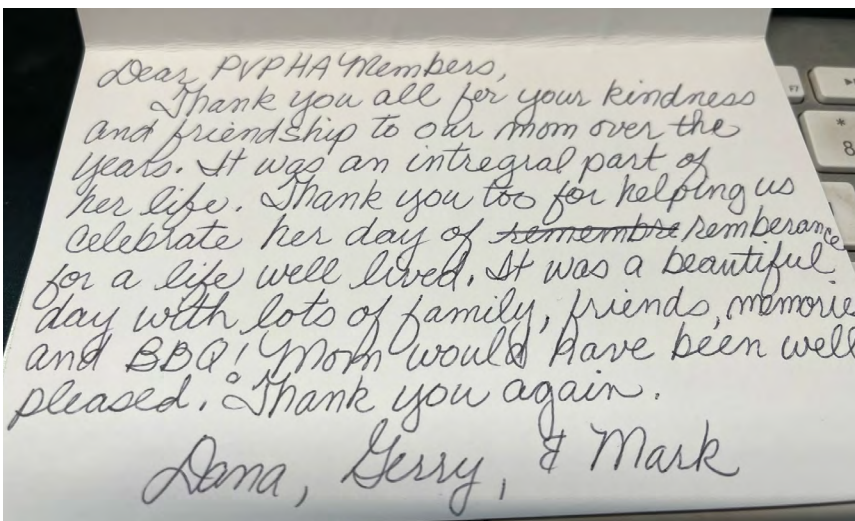 Dear PVPHA Members,
Thank you all for your kindness
and friendship to our mom over the
years. It was an intregral part of
her life. Thank you too for helping us
celebrate her day of remembre remberance
for a life well lived. It was a beautiful
day with lots of family, friends, memorie
and BBQ! Mom would have been well
pleased. Thank you again.
Dana, Gerry, & Mark
F7
*
8